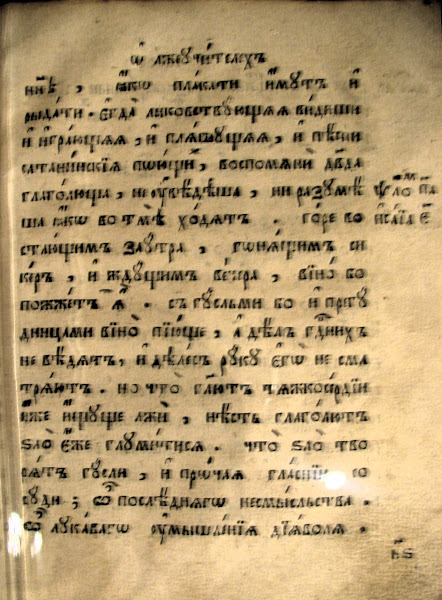 ѿ лжеучи́телехъ
ны́ѣ , ꙗ҆́кѡ пла́кати и҆́мутъ и҆
рыда́ти . є҆гда̀ ликовствꙋющыѧ ви́диши
и҆ и҆гра́ющыѧ, и҆ плѧ́шꙋщыѧ, и҆ пѣ́сни
сатани́нскїѧ пою́щи, воспомѧнѝ дв҃да
глаго́люща, не ᲂу҆вѣ́дѣша , ни разꙋмѣ́
ша ꙗ҆́кѡ во тмѣ̀ хо́дѧтъ . горе во
стаю́щимъ заꙋтра , гонѧ́щимъ си
ке́ръ , и҆ жꙋ́щимъ ве́чера , вїно̀ бо
пожже́тъ ѧ҆̀ . съ гꙋ́сльми бо и҆ прегꙋ
дницами вїно̀ пїю́ще , а҆ дѣ́лъ гдⷭ҇нихъ
не вѣ́дѧтъ, и҆ дѣ́лесъ рꙋкꙋ̀ є҆гѡ̀ не сма
трѧ́ютъ . но что̀ гл҃ютъ тѧжкосе́рдїи
лжѝ , нѣ́сть глаго́лютъ
ѕло̀ є҆́же глꙋми́тисѧ . что̀ ѕло̀ тво
рѧ́тъ гꙋ́сли , и҆ про́чаѧ со
сꙋ́ди ; ѽ послѣ́днѧгѡ несмы́сльства .
ѽ лꙋка́вагѡ ᲂу҆мышле́нїѧ дїа́волѧ .
ѱало́м п҃а
и҆са́їа є҃